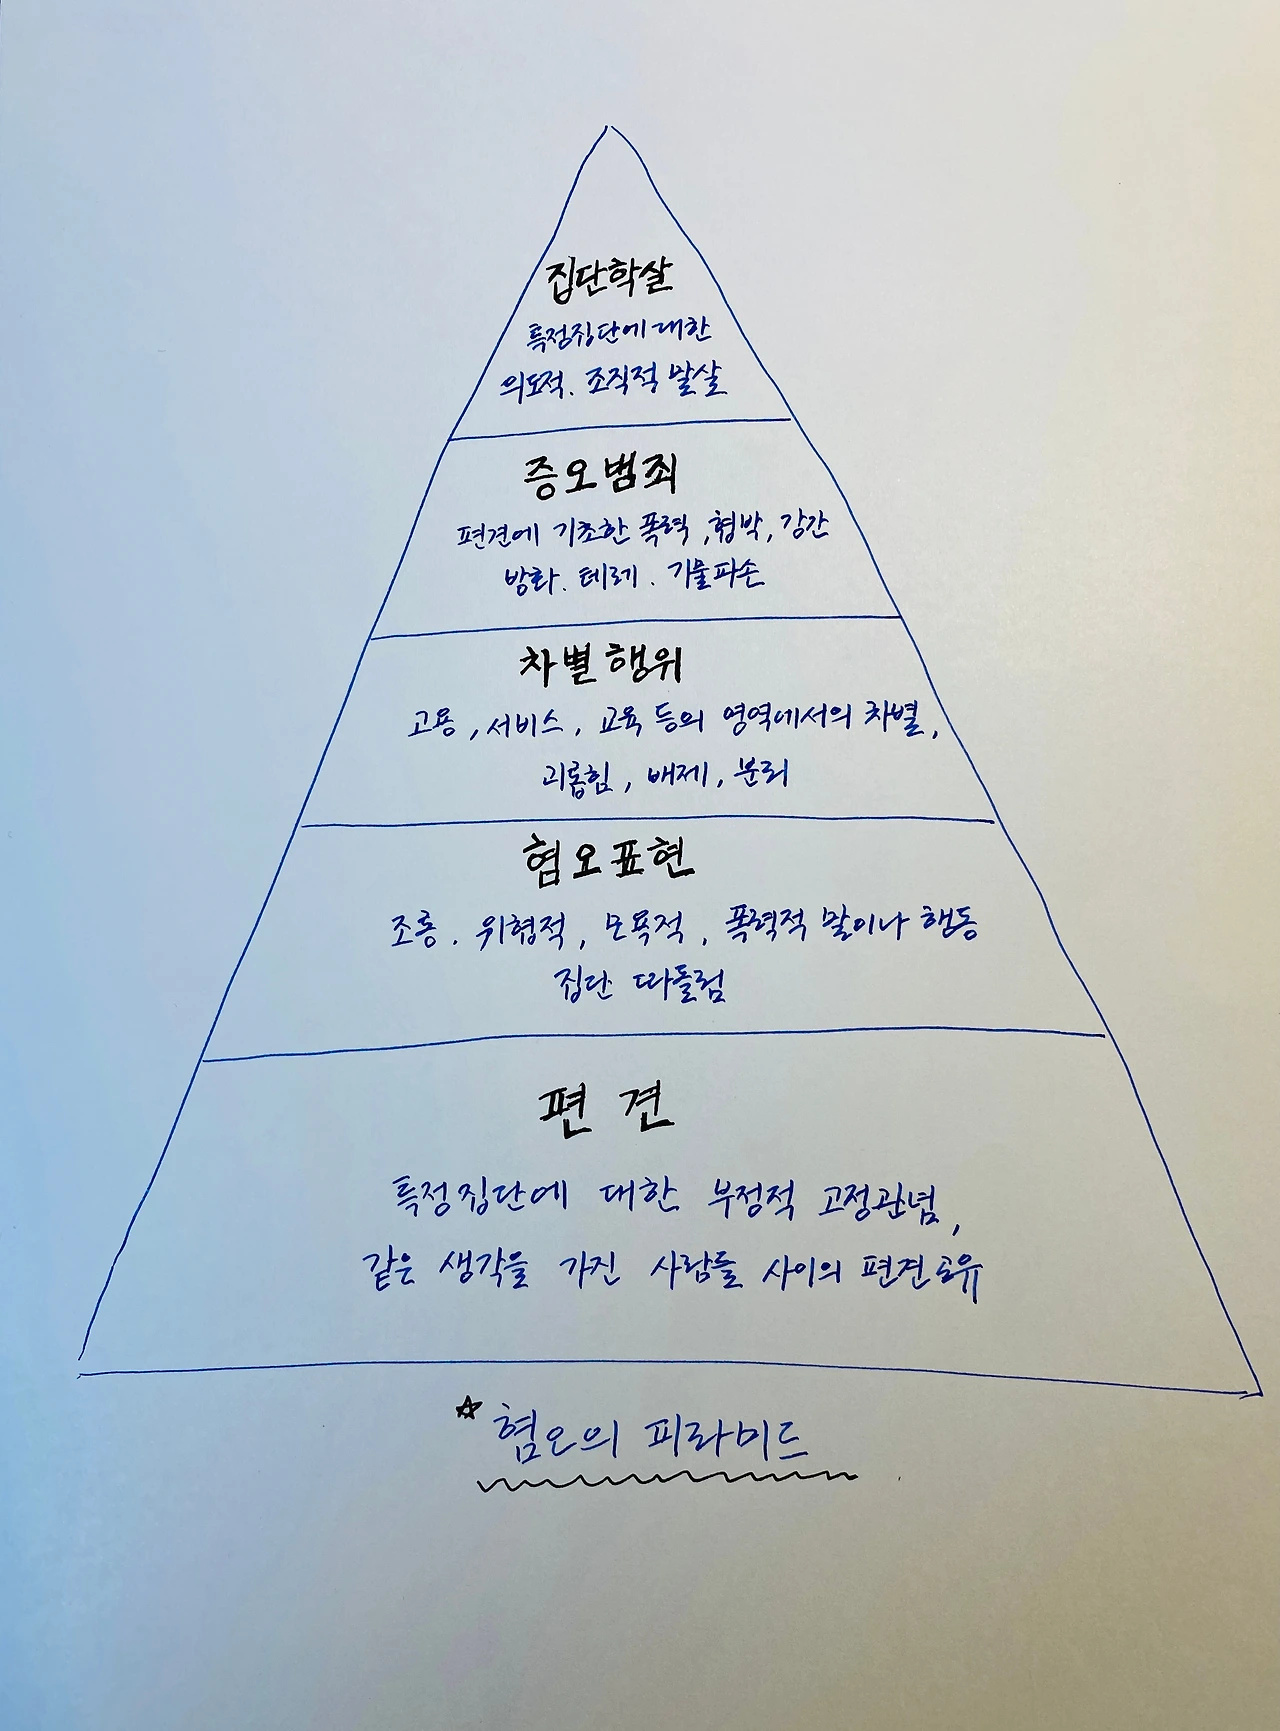 집단학살
특정집단에 대한
의도적. 조직적 말살
증오범죄
편견에 기초한 폭력, 협박, 강간
방화. 테러. 기물파손
차별행위
고용, 서비스, 교육 등의 영역에서의 차별,
괴롭힘, 배제, 분리
혐오표현
조롱. 위협적, 모욕적, 폭력적 말이나 행동
집단 따돌림
편견
특정집단에 대한 부정적 고정관념,
같은 생각을 가진 사람들 사이의 편견공유
☆ 혐오의 피라미드